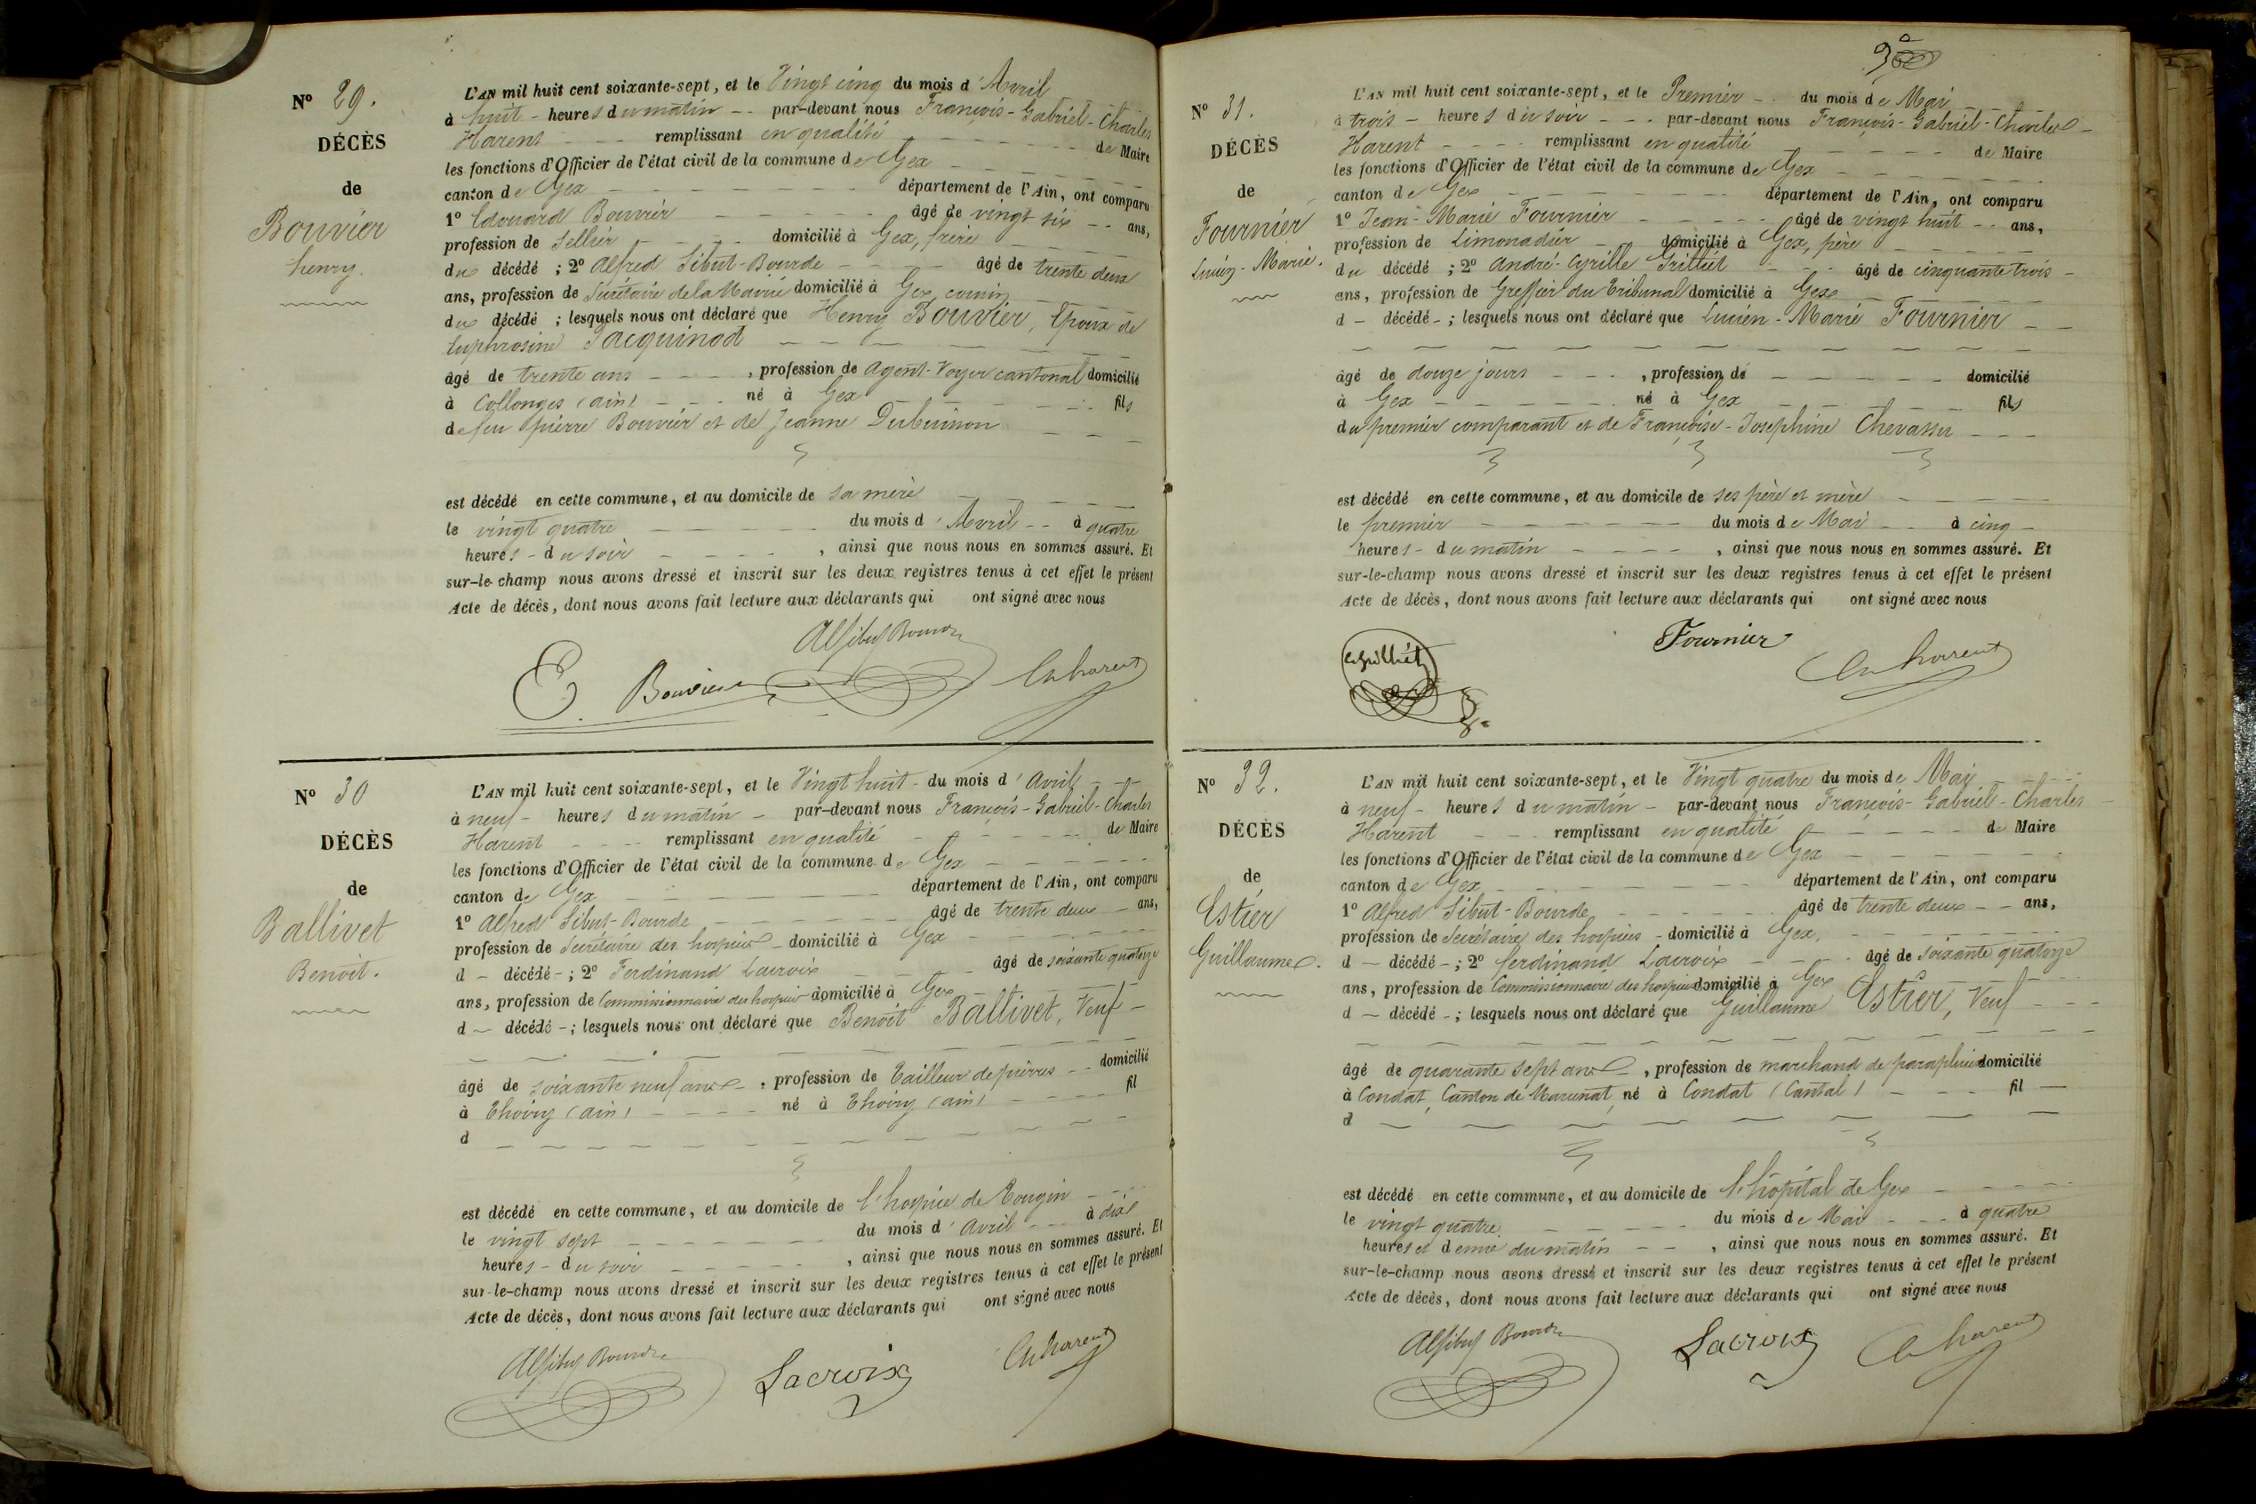 Nº 29.
DÉCÈS
de
Bouvier
henry.
L'AN mil huit cent soixante-sept, et le Vingt cinq du mois d'Avril
à huit - heures du matin -- par-devant nous François-Gabriel-Charles
Harent - - - remplissant en qualité - - - de Maire
les fonctions d'Officier de l'état civil de la commune de Gex
canton de Gex - - - département de l'Ain, ont comparu
1º Edouard Bouvier - - - âgé de vingt six -- ans,
profession de Sellier - - - domicilié à Gex, frère
du décédé ; 2º Alfred Sibut-Bourde - - - âgé de trente deux
ans, profession de Secrétaire de la Mairie domicilié à Gex, cousin
du décédé ; lesquels nous ont déclaré que Henry Bouvier, Epoux de
Euphrosine Jacquinod - - -
âgé de trente ans - - - , profession de Agent-Voyer cantonal domicilié
à Collonges (ain) - - - né à Gex - - - fils
de feu pierre Bouvier et de Jeanne Dubuisson - - -
est décédé en cette commune, et au domicile de sa mère - - -
le vingt quatre - - - du mois d'Avril -- à quatre
heures - du soir - - - , ainsi que nous nous en sommes assuré. Et
sur-le-champ nous avons dressé et inscrit sur les deux registres tenus à cet effet le présent
Acte de décès, dont nous avons fait lecture aux déclarants qui ont signé avec nous
Alf Sibut Bourde
E. Bouvier Ch harent
Nº 30
DÉCÈS
de
Ballivet
Benoit.
L'AN mil huit cent soixante-sept, et le Vingt huit - du mois d'avril - -
à neuf - heures du matin - par-devant nous François-Gabriel-Charles
Harent - - - remplissant en qualité - - - de Maire
les fonctions d'Officier de l'état civil de la commune de Gex - - -
canton de Gex - - - département de l'Ain, ont comparu
1º Alfred Sibut-Bourde - - - âgé de trente deux - ans,
profession de Secrétaire des hospices - domicilié à Gex - - -
d - décédé - ; 2º Ferdinand Lacroix - - - âgé de soixante quatorze
ans, profession de Commissionnaire des hospices domicilié à Gex
d - décédé - ; lesquels nous ont déclaré que Benoit Ballivet, Veuf -
âgé de soixante neuf ans - , profession de Tailleur de pierres - - domicilié
à Thoiry (ain) - - - né à Thoiry (ain) - - - fil
d - - -
est décédé en cette commune, et au domicile de l'hospice de Tougin - - -
le vingt sept - - - du mois d'avril - - - à dix
heures - du soir - - - , ainsi que nous nous en sommes assuré. Et
sur-le-champ nous avons dressé et inscrit sur les deux registres tenus à cet effet le présent
Acte de décès, dont nous avons fait lecture aux déclarants qui ont signé avec nous
Alf Sibut Bourde Lacroix Ch harent
Nº 31.
DÉCÈS
de
Fournier
Lucien-Marie.
L'AN mil huit cent soixante-sept, et le Premier - - du mois de Mai
à trois - heures du soir - - - par-devant nous François-Gabriel-Charles -
Harent - - - remplissant en qualité - - - de Maire
les fonctions d'Officier de l'état civil de la commune de Gex - - -
canton de Gex - - - département de l'Ain, ont comparu
1º Jean-Marie Fournier - - - âgé de vingt huit - - ans,
profession de Limonadier - domicilié à Gex, père - - -
du décédé ; 2º André-Cyrille Grilliét - - - âgé de cinquante trois -
ans, profession de Greffier du Tribunal domicilié à Gex - - -
d - décédé - ; lesquels nous ont déclaré que Lucien-Marie Fournier - -
âgé de douze jours - - - , profession de - - - domicilié
à Gex - - - né à Gex - - - fils
du premier comparant et de Françoise-Josephine Chevassu - - -
est décédé en cette commune, et au domicile de ses père et mère - - -
le premier - - - du mois de Mai - - à cinq -
heures - du matin - - - , ainsi que nous nous en sommes assuré. Et
sur-le-champ nous avons dressé et inscrit sur les deux registres tenus à cet effet le présent
Acte de décès, dont nous avons fait lecture aux déclarants qui ont signé avec nous
Grilliét Fournier Ch harent
Nº 32.
DÉCÈS
de
Estier
Guillaume.
L'AN mil huit cent soixante-sept, et le Vingt quatre du mois de Mai
à neuf - heures du matin - par-devant nous François-Gabriel-Charles
Harent - - - remplissant en qualité - - - de Maire
les fonctions d'Officier de l'état civil de la commune de Gex - - -
canton de Gex - - - département de l'Ain, ont comparu
1º Alfred Sibut-Bourde - - - âgé de trente deux - - ans,
profession de Secrétaire des hospices - domicilié à Gex, - - -
d - décédé - ; 2º ferdinand Lacroix - - - âgé de soixante quatorze
ans, profession de Commissionnaire des hospices domicilié à Gex
d - décédé - ; lesquels nous ont déclaré que Guillaume Estier, Veuf - - -
âgé de quarante sept ans - , profession de marchand de parapluies domicilié
à Condat, Canton de Marcenat, né à Condat (Cantal) - - - fil -
d - - -
est décédé en cette commune, et au domicile de l'hôpital de Gex - - -
le vingt quatre - - - du mois de Mai - - - à quatre
heures et demie du matin - - , ainsi que nous nous en sommes assuré. Et
sur-le-champ nous avons dressé et inscrit sur les deux registres tenus à cet effet le présent
Acte de décès, dont nous avons fait lecture aux déclarants qui ont signé avec nous
Alf Sibut Bourde Lacroix Ch harent